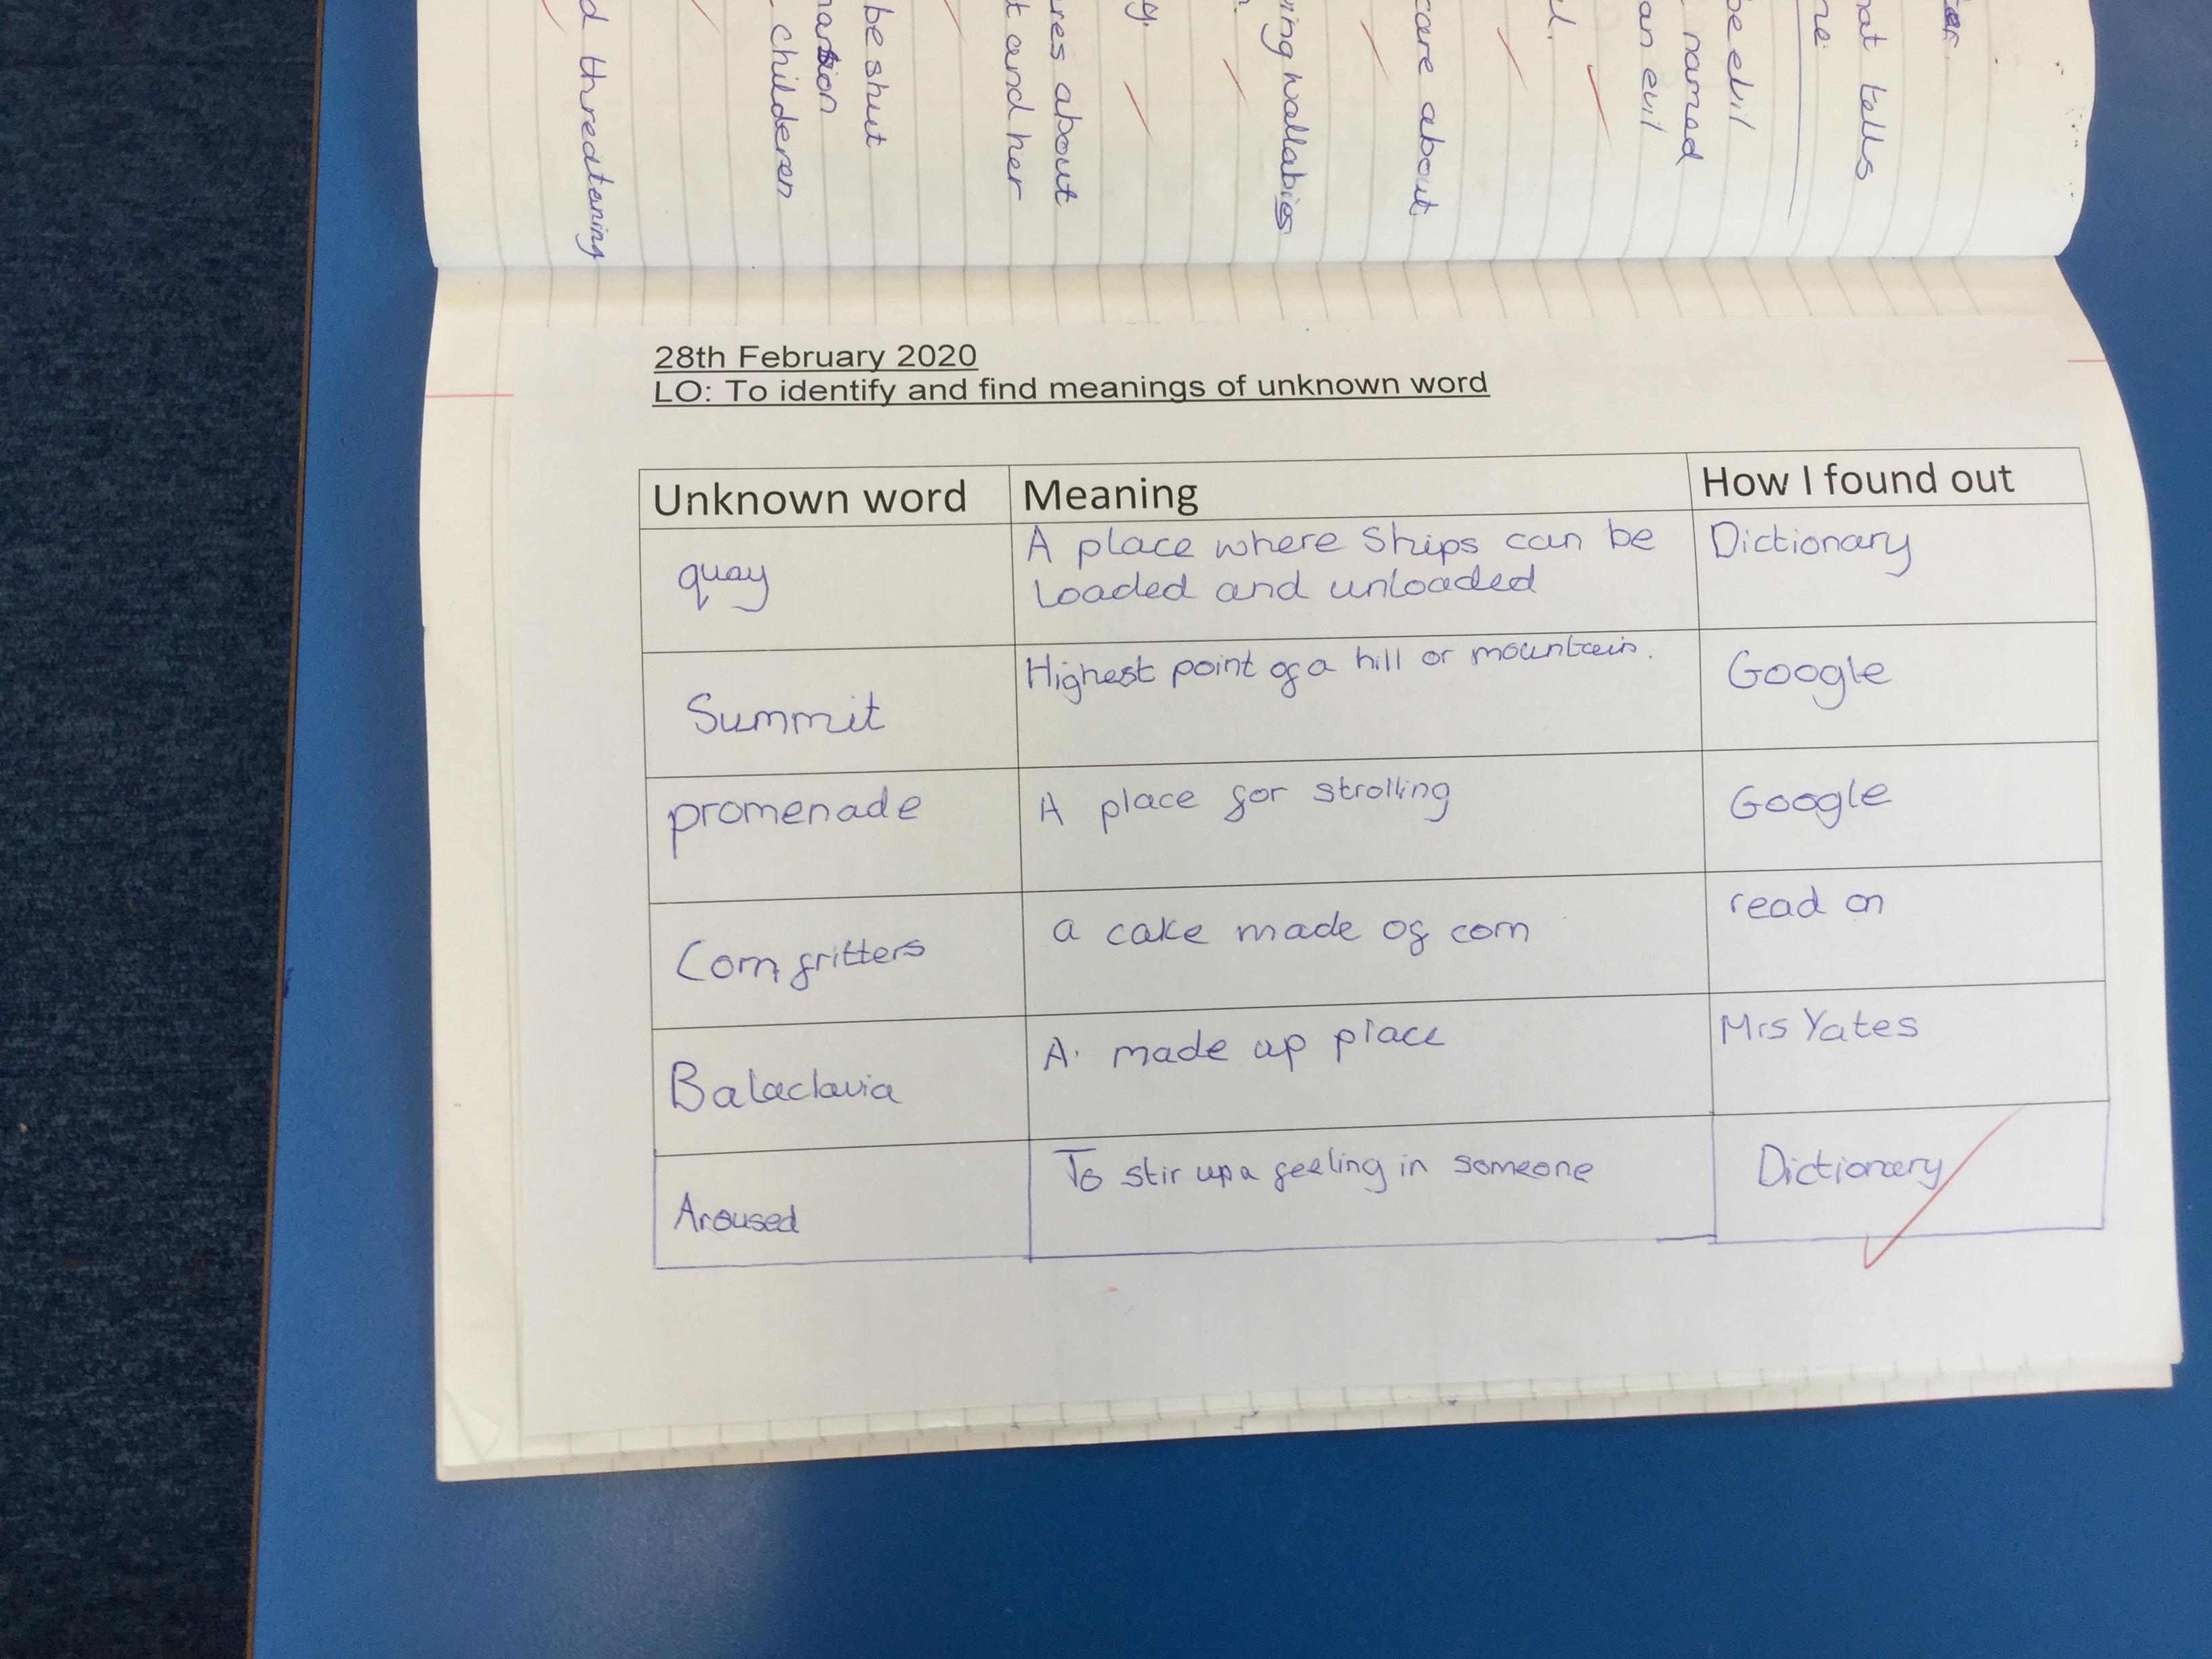 d threataning
childeren
be shut
t and her
res about
y.
ving wallabies
care about
l.
an evil
named
be evil
ne:
hat tells
28th February 2020
LO: To identify and find meanings of unknown word
Unknown word Meaning How I found out
quay A place where Ships can be Dictionary
Loaded and unloaded
Summit Highest point of a hill or mountain. Google
promenade A place for strolling Google
Corn fritters a cake made of corn read on
Balaclavia A made up place Mrs Yates
Aroused To stir up a feeling in someone Dictionary